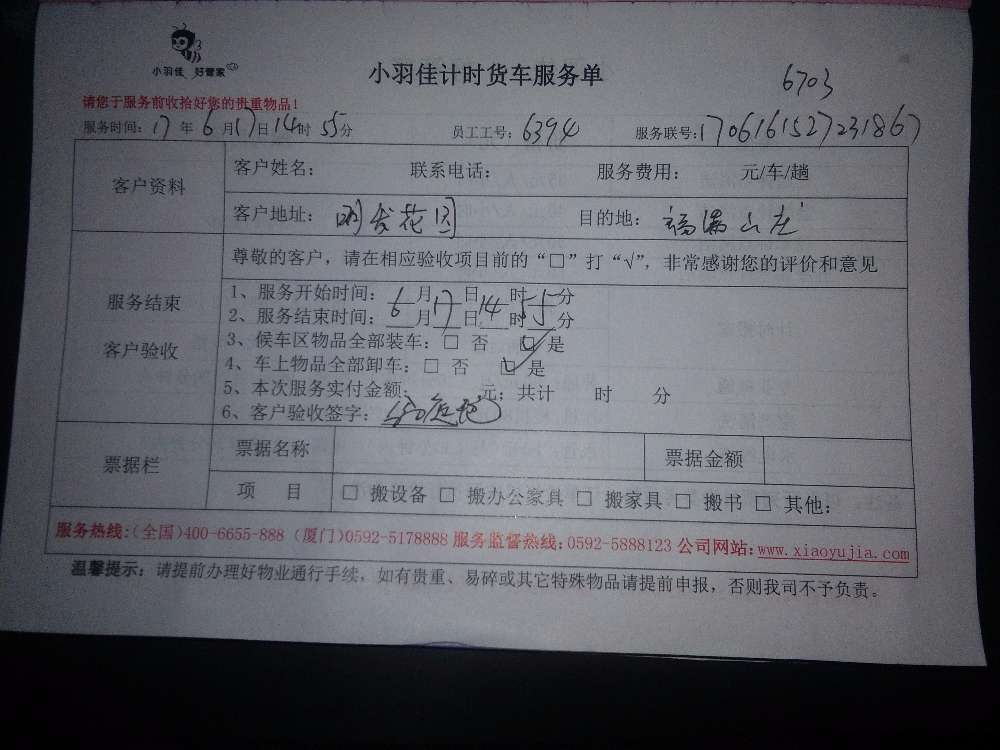 小羽佳 好管家
小羽佳计时货车服务单
6703
请您于服务前收拾好您的贵重物品！
服务时间：17年6月17日14时55分 员工工号：6394 服务联号：1706161527231867
客户资料
客户姓名： 联系电话： 服务费用： 元/车/趟
客户地址：明发花园 目的地：福满山庄
服务结束
客户验收
尊敬的客户，请在相应验收项目前的“□”打“√”，非常感谢您的评价和意见
1、服务开始时间：6月17日14时55分
2、服务结束时间： 月 日 时 分
3、候车区物品全部装车：□ 否 ☑ 是
4、车上物品全部卸车：□ 否 ☑ 是
5、本次服务实付金额： 元；共计 时 分
6、客户验收签字：
票据栏
票据名称 票据金额
项 目 □ 搬设备 □ 搬办公家具 □ 搬家具 □ 搬书 □ 其他：
服务热线：(全国)400-6655-888 (厦门)0592-5178888 服务监督热线：0592-5888123 公司网站：www.xiaoyujia.com
温馨提示：请提前办理好物业通行手续，如有贵重、易碎或其它特殊物品请提前申报，否则我司不予负责。